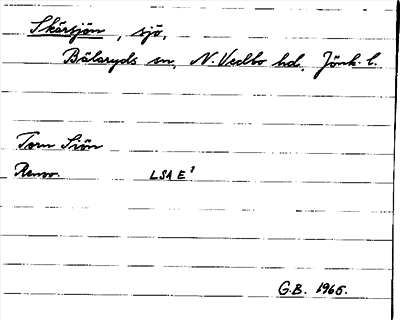 Skärsjön, sjö,
Bälaryds sn, N. Vedbo hd, Jönk. l.
Torn Siön
Renov. LSA E²
G.B. 1965.